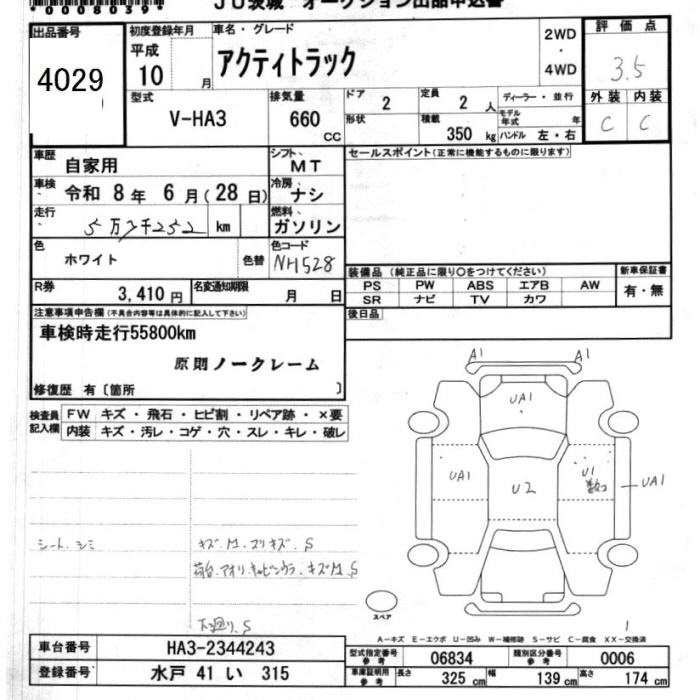 *0008039*
JU茨城 オークション出品申込書
出品番号
4029
初度登録年月
平成
10 月
車名・グレード
アクティトラック
2WD
・
4WD
評価点
3.5
外装 内装
C C
型式
V-HA3
排気量
660 CC
ドア 2
形状
定員 2 人
積載 350 kg
ディーラー・並行
モデル年式 年
ハンドル 左・右
車歴 自家用
シフト MT
セールスポイント(正常に機能するものに限ります)
車検 令和 8年 6月(28日)
冷房 ナシ
走行 km
燃料 ガソリン
色 ホワイト 色替
色コード NH528
R券 3,410円
名変通知期限 月 日
装備品(純正品に限り○をつけてください)
PS PW ABS エアB AW
SR ナビ TV カワ
新車保証書
有・無
後日品
注意事項申告欄(不具合内容等は具体的に記入して下さい)
車検時走行55800km
原則ノークレーム
修復歴 有〔箇所 〕
検査員記入欄
FW キズ・飛石・ヒビ割・リペア跡・×要
内装 キズ・汚レ・コゲ・穴・スレ・キレ・破レ
シート、シミ
キズM、スリキズ、S
下廻り、S
A1 A1
UA1
UA1
U2
U1
UA1
スペア
A-キズ E-エクボ U-凹み W-補修跡 S-サビ C-腐食 XX-交換済
車台番号 HA3-2344243
登録番号 水戸 41 い 315
型式指定番号 参考 06834
類別区分番号 参考 0006
車庫証明用 参考 長さ 325 cm 幅 139 cm 高さ 174 cm